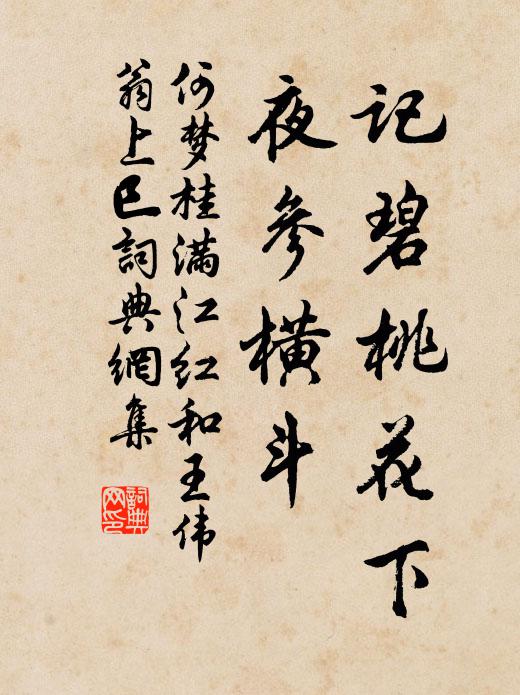 记碧桃花下
夜参橫斗
何梦桂满江红和王伟
翁上巳詞典網集
詞典
网印